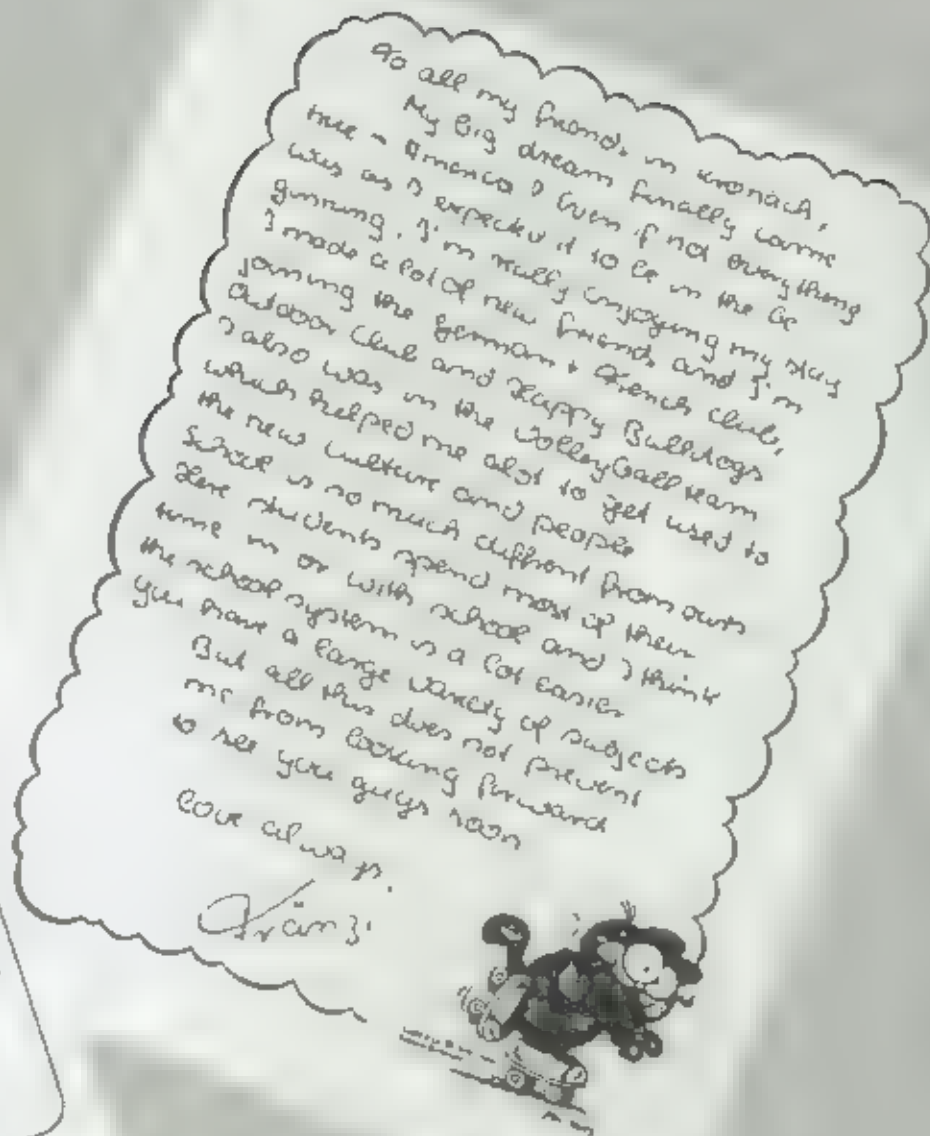 To all my friends in Kronach,
My big dream finally came
true - America! Even if not everything
was as I expected it to be in the be
ginning, I'm really enjoying my stay
I made a lot of new friends and I'm
joining the German + French Club,
Outdoor Club and Happy Bulldogs
I also was in the Volleyball team
which helped me alot to get used to
the new culture and people
School is so much diffrent from ours
Here students spend most of their
time in or with school and I think
the school system is a lot easier
you have a large variety of subjects
But all this does not prevent
me from looking forward
to see you guys soon
Love always,
Fränzi